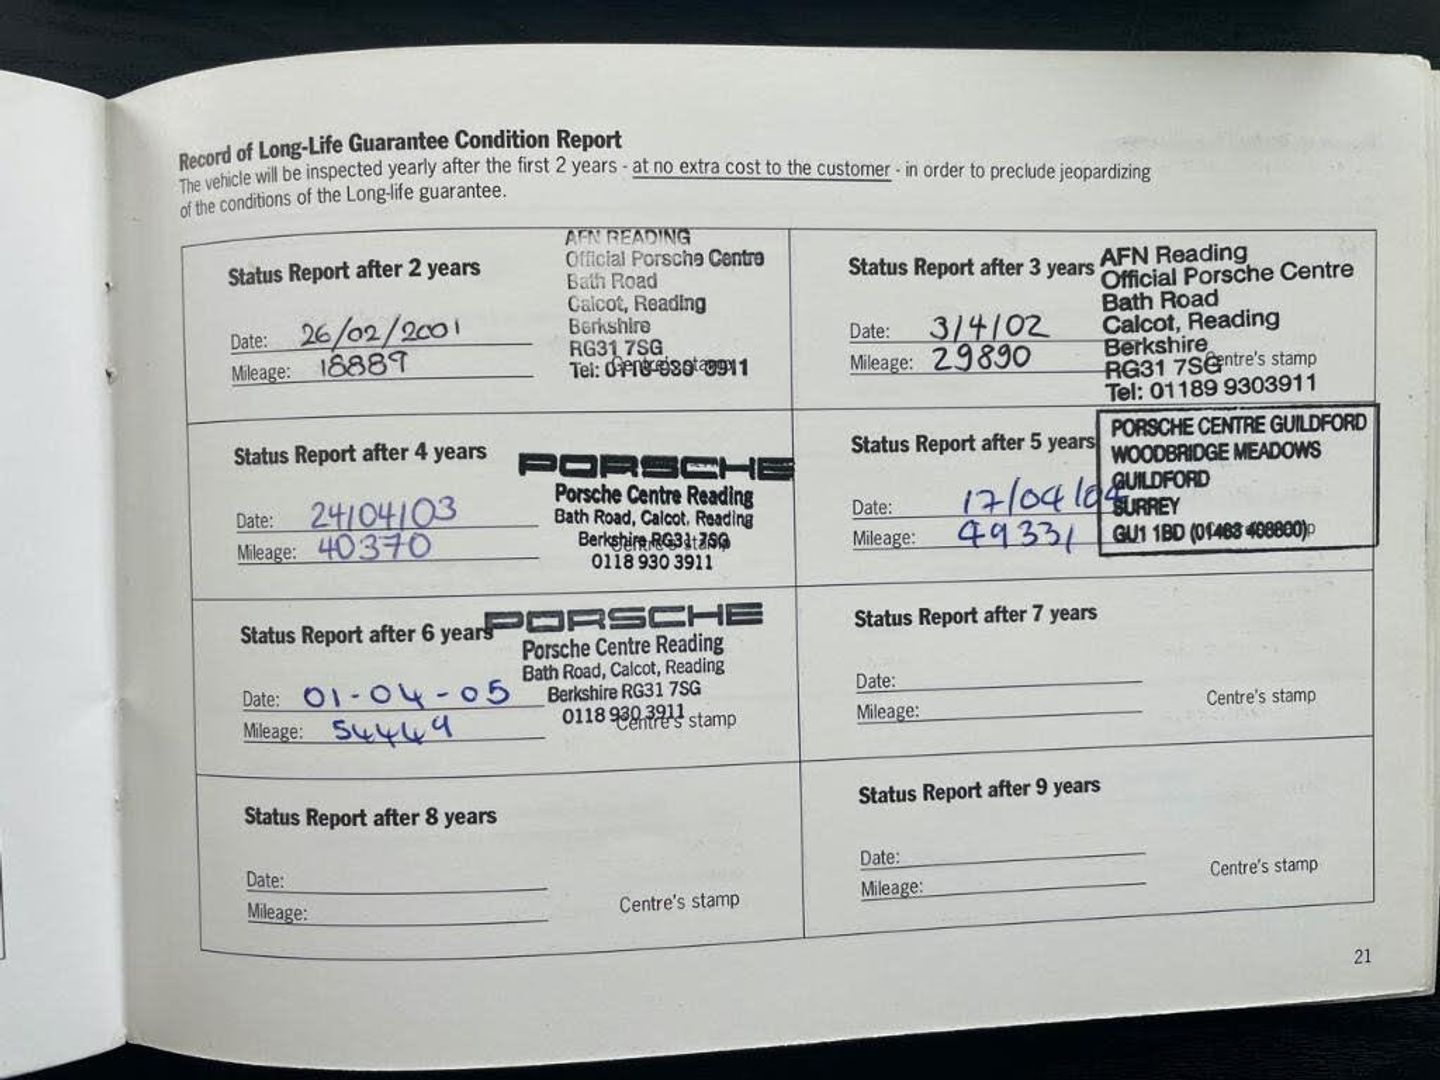 Record of Long-Life Guarantee Condition Report
The vehicle will be inspected yearly after the first 2 years - at no extra cost to the customer - in order to preclude jeopardizing
of the conditions of the Long-life guarantee.
Status Report after 2 years
Date: 26/02/2001
Mileage: 18889
AFN READING
Official Porsche Centre
Bath Road
Calcot, Reading
Berkshire
RG31 7SG
Tel: 0118 930 3911
Centre's stamp
Status Report after 3 years
Date: 3/4/02
Mileage: 29890
AFN Reading
Official Porsche Centre
Bath Road
Calcot, Reading
Berkshire
RG31 7SG
Tel: 01189 9303911
Centre's stamp
Status Report after 4 years
Date: 24/04/03
Mileage: 40370
PORSCHE
Porsche Centre Reading
Bath Road, Calcot, Reading
Berkshire RG31 7SG
0118 930 3911
Centre's stamp
Status Report after 5 years
Date: 17/04/04
Mileage: 49331
PORSCHE CENTRE GUILDFORD
WOODBRIDGE MEADOWS
GUILDFORD
SURREY
GU1 1BD (01483 408800)
Status Report after 6 years
Date: 01-04-05
Mileage: 54449
PORSCHE
Porsche Centre Reading
Bath Road, Calcot, Reading
Berkshire RG31 7SG
0118 930 3911
Centre's stamp
Status Report after 7 years
Date:
Mileage:
Centre's stamp
Status Report after 8 years
Date:
Mileage:
Centre's stamp
Status Report after 9 years
Date:
Mileage:
Centre's stamp
21